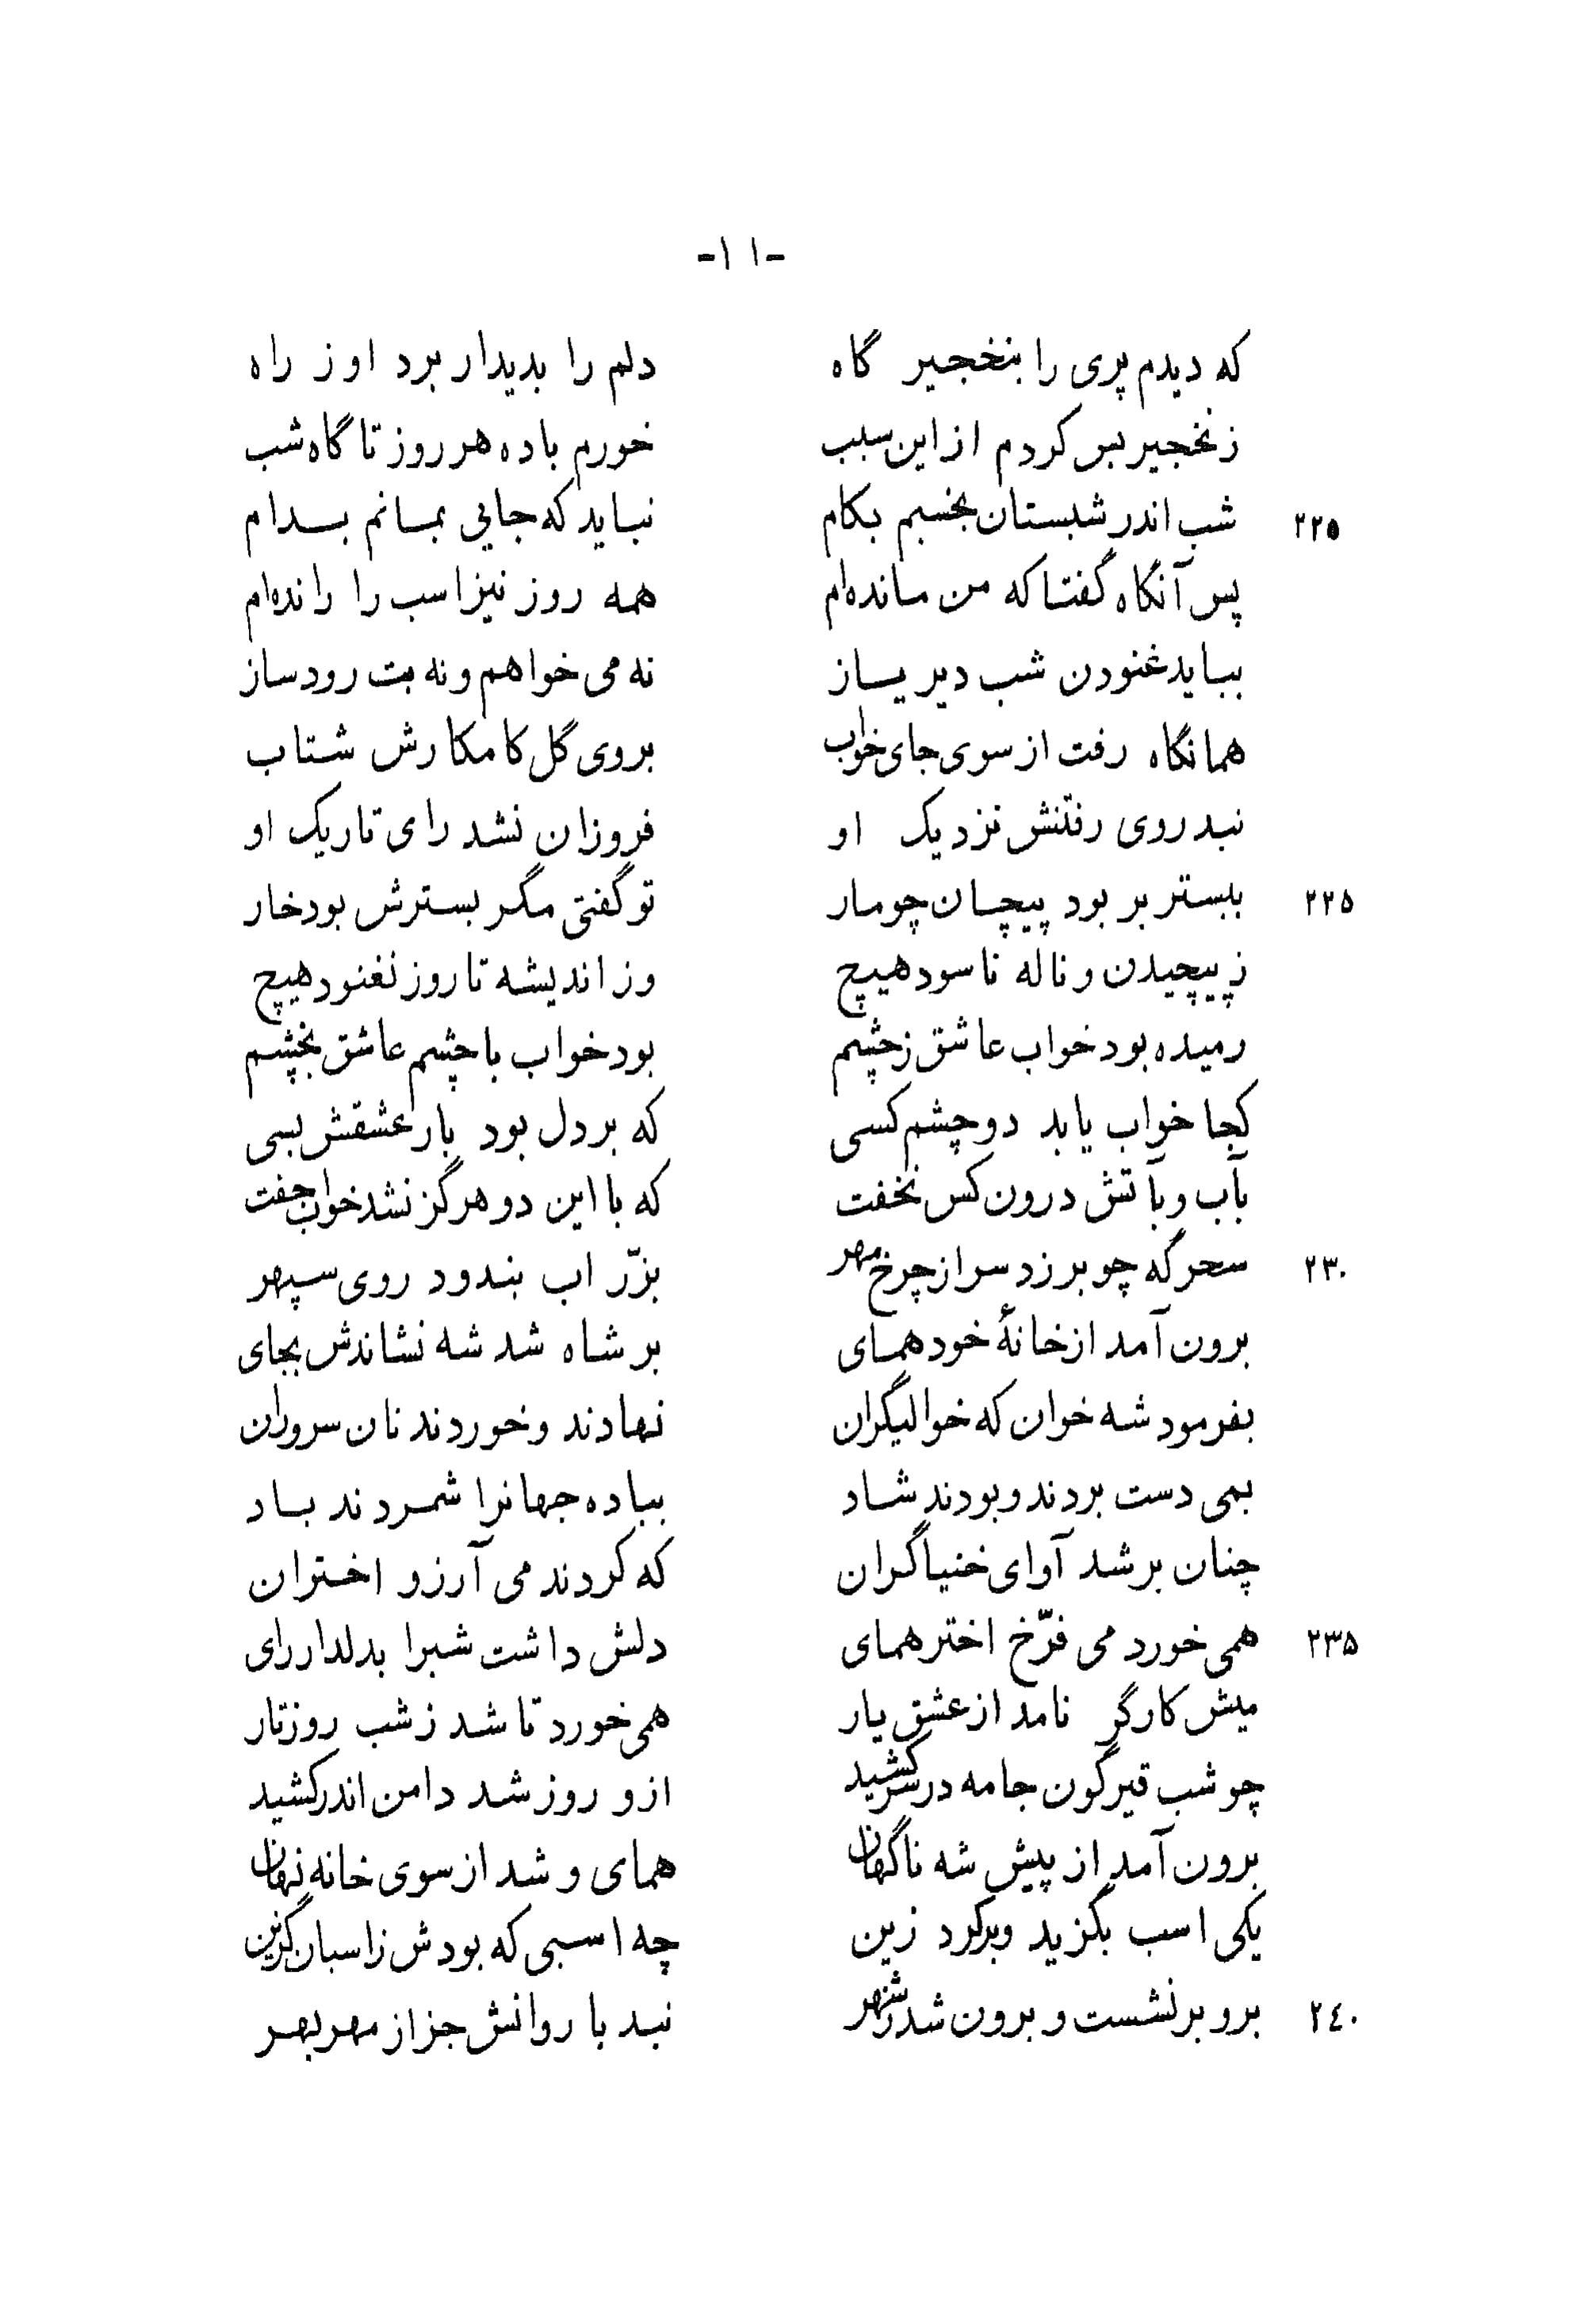 -۱۱-
که دیدم پری را بنخجیر گاه دلم را بدیدار برد او ز راه
ز نخجیر بس کردم از این سبب خورم باده هر روز تا گاه شب
۲۲۵ شب اندر شبستان بخسبم بکام نباید که جایی بمانم بدام
پس آنگاه گفتا که من مانده‌ام همه روز نیز اسب را رانده‌ام
بباید غنودن شب دیر یاز نه می خواهم و نه بت رود ساز
همانگاه رفت از سوی جای خواب بروی گل کامکارش شتاب
نبد روی رفتنش نزدیک او فروزان نشد رای تاریک او
۲۲۵ ببستر بر بود پیچان چو مار تو گفتی مگر بسترش بود خار
ز پیچیدن و ناله ناسود هیچ وز اندیشه تا روز نغنود هیچ
رمیده بود خواب عاشق ز چشم بود خواب با چشم عاشق بخشم
کجا خواب یابد دو چشم کسی که بر دل بود بار عشقش بسی
بآب و بآتش درون کس نخفت که با این دو هرگز نشد خواب جفت
۲۳۰ سحرگه چو بر زد سر از چرخ مهر بزّر اب بندود روی سپهر
برون آمد از خانهٔ خود همای بر شاه شد شه نشاندش بجای
بفرمود شه خوان که خوالیگران نهادند و خوردند نان سروران
بمی دست بردند و بودند شاد بباده جهانرا شمردند باد
چنان بر شد آوای خنیاگران که کردند می آرزو اختران
۲۳۵ همی خورد می فرّخ اختر همای دلش داشت شبرا بدلدار رای
میش کارگر نامد از عشق یار همی خورد تا شد ز شب روز تار
چو شب قیرگون جامه در سر کشید ازو روز شد دامن اندر کشید
برون آمد از پیش شه ناگهان همای و شد از سوی خانه نهان
یکی اسب بگزید و بر کرد زین چه اسبی که بودش ز اسبان گزین
۲٤۰ برو بر نشست و برون شد ز شهر نبد با روانش جز از مهر بهر